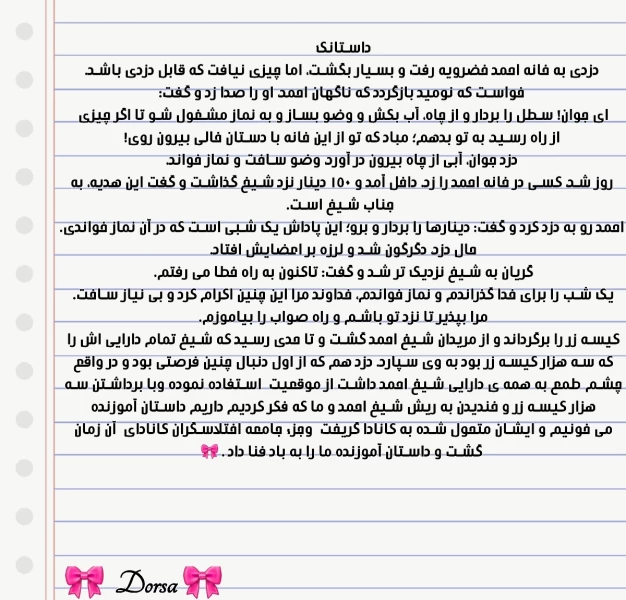 داستانک
دزدی به خانه احمد خضرویه رفت و بسیار بگشت، اما چیزی نیافت که قابل دزدی باشد.
خواست که نومید بازگردد که ناگهان احمد، او را صدا زد و گفت:
ای جوان! سطل را بردار و از چاه، آب بکش و وضو بساز و به نماز مشغول شو تا اگر چیزی
از راه رسید، به تو بدهم؛ مباد که تو از این خانه با دستان خالی بیرون روی!
دزد جوان، آبی از چاه بیرون در آورد، وضو ساخت و نماز خواند.
روز شد، کسی در خانه احمد را زد. داخل آمد و ۱۵۰ دینار نزد شیخ گذاشت و گفت این هدیه، به
جناب شیخ است.
احمد رو به دزد کرد و گفت: دینارها را بردار و برو؛ این پاداش یک شبی است که در آن نماز خواندی.
حال دزد، دگرگون شد و لرزه بر اعضایش افتاد.
گریان به شیخ نزدیک تر شد و گفت: تاکنون به راه خطا می رفتم.
یک شب را برای خدا گذراندم و نماز خواندم، خداوند مرا این چنین اکرام کرد و بی نیاز ساخت.
مرا بپذیر تا نزد تو باشم و راه صواب را بیاموزم.
کیسه زر را برگرداند و از مریدان شیخ احمد گشت و تا حدی رسید که شیخ تمام دارایی اش را
که سه هزار کیسه زر بود به وی سپارد. دزد هم که از اول دنبال چنین فرصتی بود و در واقع
چشم طمع به همه ی دارایی شیخ احمد داشت از موقعیت استفاده نموده وبا برداشتن سه
هزار کیسه زر و خندیدن به ریش شیخ احمد و ما که فکر کردیم داریم داستان آموزنده
می خونیم و ایشان متحول شده به کانادا گریخت وجزء جامعه اختلاسگران کانادای آن زمان
گشت و داستان آموزنده ما را به باد فنا داد. 🎀
🎀 Dorsa 🎀